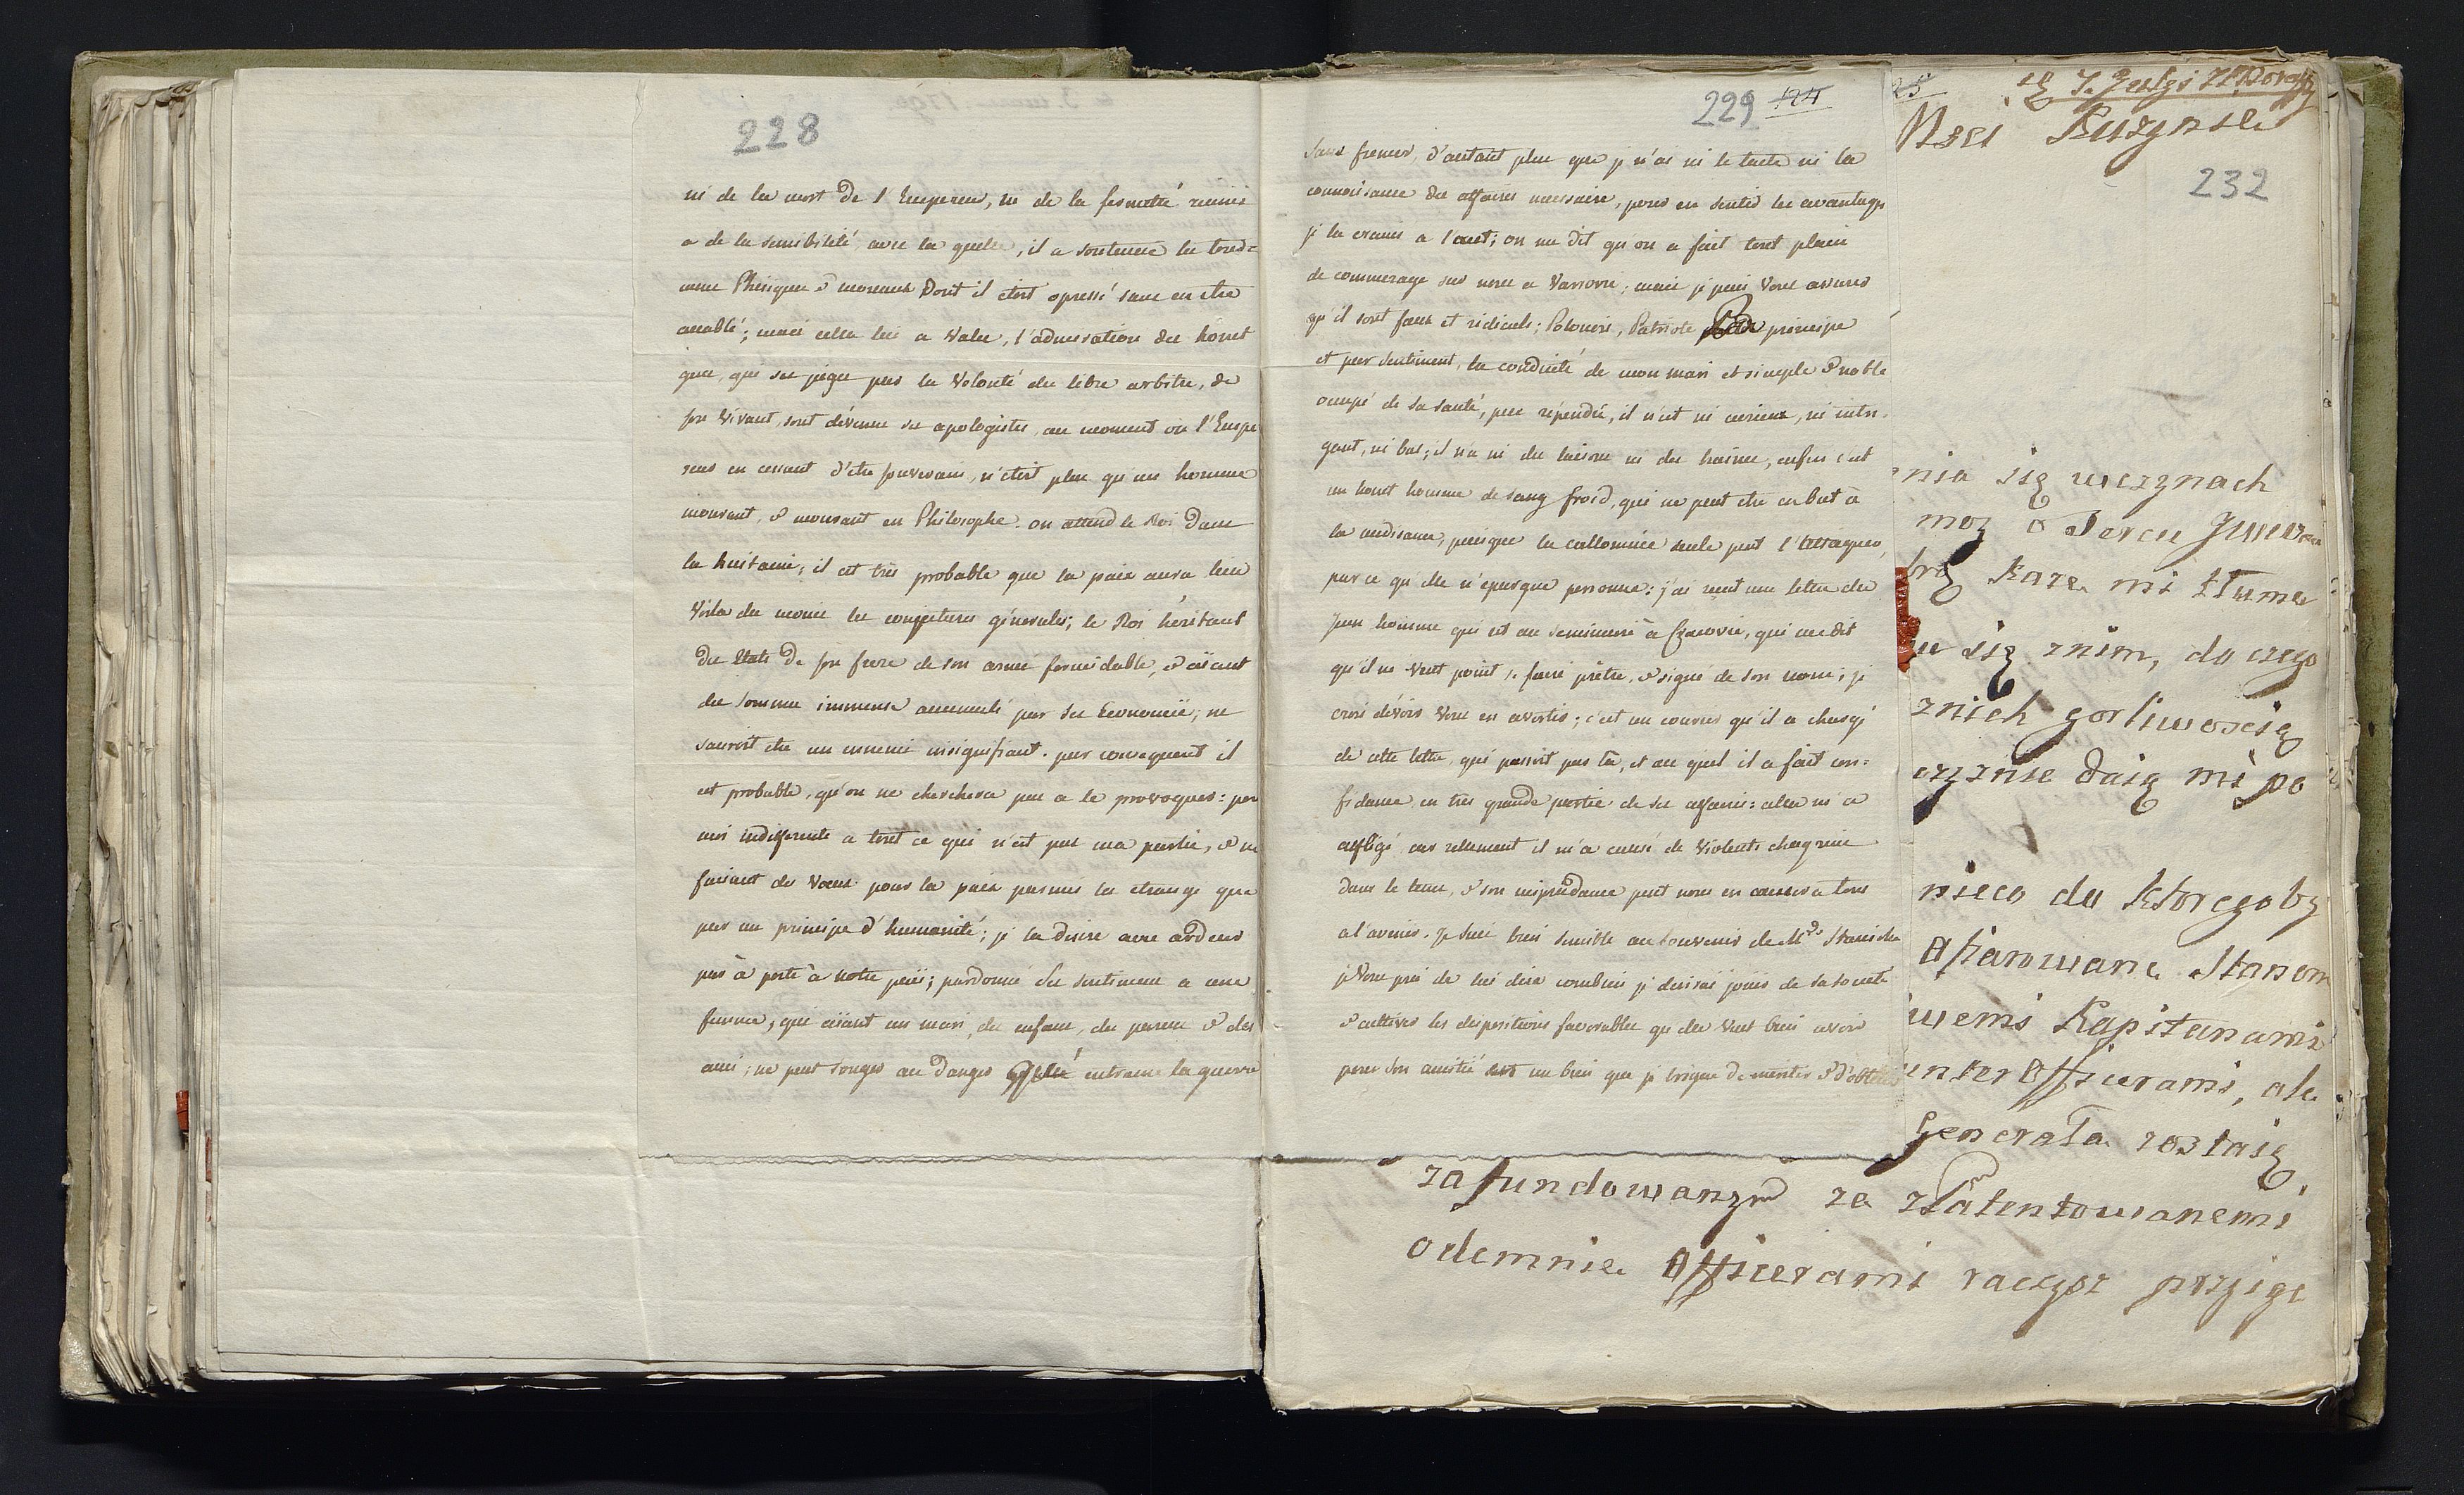 228
ni de la mort de l'Empereur, ni de la fermeté réunis
a de la sensibilité avec la quelle, il a soutenue les tour=
mens Phisique & moreaux dont il etoit opressé sans en etre
accablé; mais cella lui a valu, l'admiration des honet
gens, qui ne juges pas la Volonté du libre arbitre, de
son vivant, sont dévenus ses apologistes, au moment où l'Empe
reur en cessant d'etre souverain, n'étoit plus qu'un homme
mourant, & mourant en Philosophe. on attend le Roi dans
la huitaine; il est très probable que la paix aura lieu
Voila du moins les conjectures génerales; le Roi héritant
des Etats de son frere de son armé formidable, & aiiant
des sommes immense accumulé par ses Economiës; ne
sauroit etre un ennemi insignifiant. par consequent il
est probable, qu'on ne cherchera pas a le provoquer: pour
moi indifferente a tout ce qui n'est pas ma patrie, & ne
faisant de Voeux pour la paix parmis les etrangé que
par un principe d'humanité; je la désire avec ardeur
par à porté à notre païs; pardonné ses sentimens a une
femme, qui aiiant un mari, des enfans, des parens & des
amis; ne peut songer au danger qu'elle entraine la guerre
229 124
sans fremir, d'autant plus que je n'ai ni le tacte ni la
connoissance des affaires necessaire, pour en sentir les avantages
je la crains a l'excet; on me dit qu'on a fait tout plein
de commerage sur nous a Varsovie; mais je puis Vous assurer
qu'il sont faux et ridicule; Polonois, Patriote par principe
et par sentiment, la conduite de mon mari est simple & noble
occupé de sa santé, peu répendu, il n'est ni curieux, ni intri
gant, ni bas; il n'a ni des liaisons ni des haines, enfin c'est
un honet homme de sang froid, qui ne peut etre en but à
la medisance, puisque la callomnie seule peut l'attaquer,
parce qu'elle n'epargne personne: j'ai reçut une lettre du
jeun homme qui est au seminaire à Cracovie, qui me dit
qu'il ne veut point se faire prêtre, & signé de son nom; je
crois dévoir vous en avertir; c'est un courier qu'il a chargé
de cette lettre, qui passoit par là, et au quel il a fait con=
fidance en tres grande partie de ses affaires: cela m'a
affligé car rellement il m'a causé de Violents chagrins
dans le tems, & son imprudance peut nous en causer a tous
a l'avenir. Je suis bien sensible au souvenir de Mde
je Vous prie de lui dire combien je desirai jouir de sa societé
& cultiver les dispositions favorables qu'elle veut bien avoir
pour son amitié est un bien que je brigue de meriter & d'obtenir
25
Mści
232
nia się w
moy o Sercu
Każe mi
się znim, do czego
znich gorliwością
daią mi po
do ktoregoby
ofiarowane Stanom
wemi Kapitanami
unter Officerami, ale
Generała zostaią
za fundowanym za
odemnie Officerami raczysz przyiąć